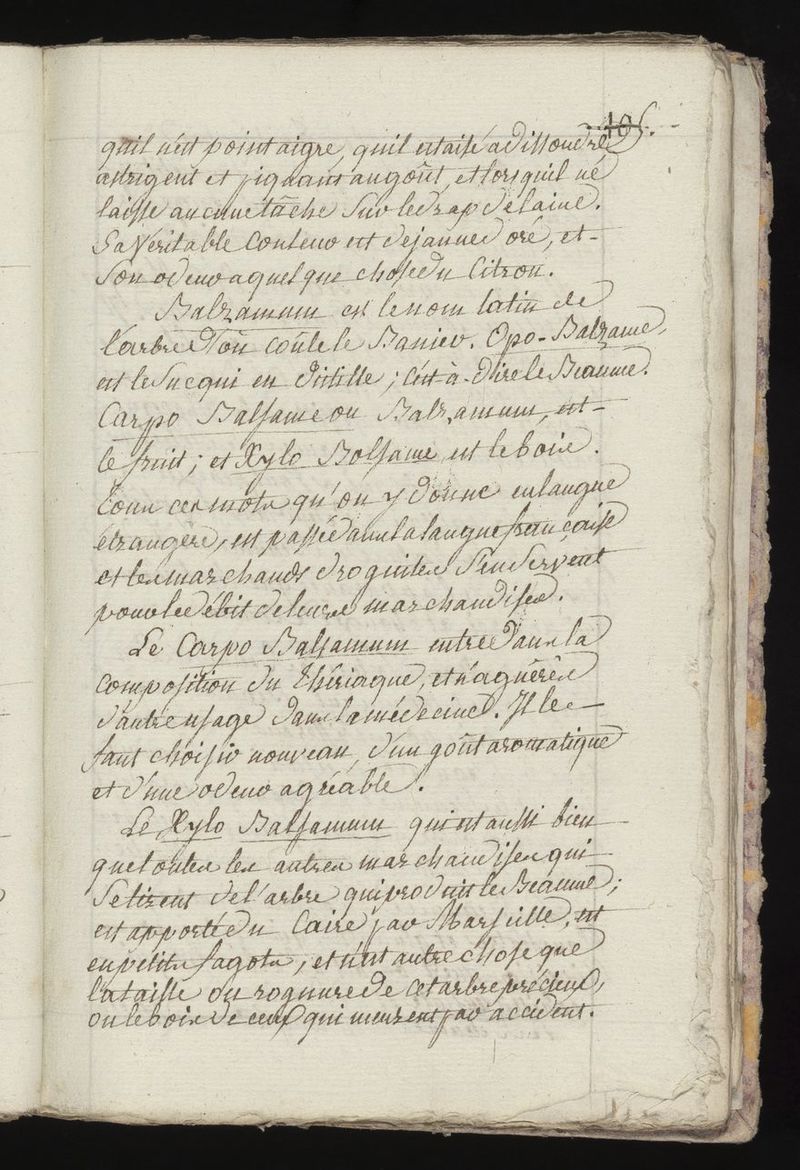 105.
qu'il n'est point aigre, qu'il est aisé a dissoudre,
astrigent et piquant au goût, et lorsquil ne
laisse aucune tâche sur le drap de laine.
Sa Veritable couleur est de jaune doré, et
son odeur a quelque chose du Citron.
Balzamum est le nom latin de
l'arbre d'où coûle le Banier. Opo-Balzame,
est le suc qui en distille; c'est à-dire le Beaume.
Carpo Balsame ou Balzamum, est
le fruit; et Xylo Bolsame est le bois.
Tous ces mots qu'on y donne en langue
étrangère, est passée dans la langue française
et les marchands droguistes s'en servent
pour le débit de leurs marchandises.
Le Carpo Balsamum entre dans la
composition du Thériaque, et n'a guères
d'autre usage dans la médecine. Il le
faut choisir nouveau, d'un goût aromatique
et d'une odeur agréable.
Le Xylo Balsamum qui est aussi bien
que toutes les autres marchandises qui
se tirent de l'arbre qui produit le Beaume;
est apportée du Caire par Marseille, est
en petits fagots, et n'est autre chose que
la taille ou rognure de cet arbre précieux,
ou le bois de ceux qui meurent par accident.